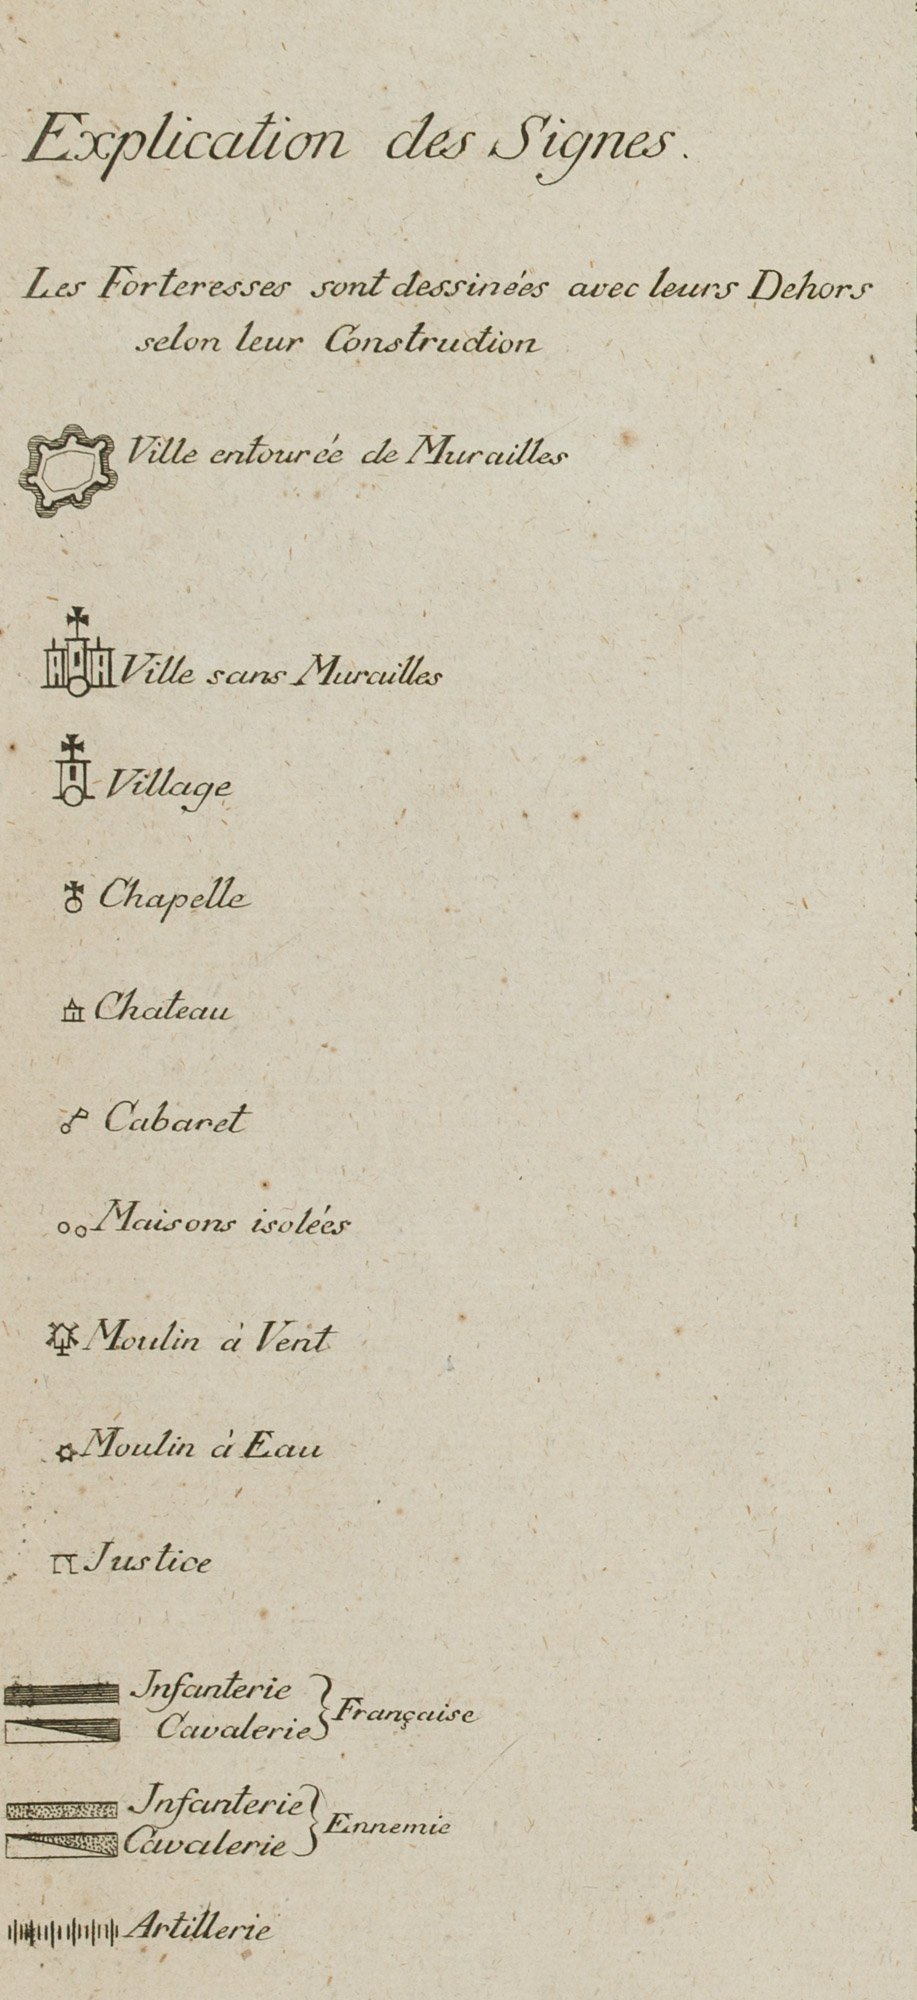 Explication des Signes.
Les Forteresses sont dessinées avec leurs Dehors
selon leur Construction
Ville entourée de Murailles
Ville sans Murailles
Village
Chapelle
Chateau
Cabaret
Maisons isolées
Moulin à Vent
Moulin à Eau
Justice
Infanterie
Cavalerie
Française
Infanterie
Cavalerie
Ennemie
Artillerie